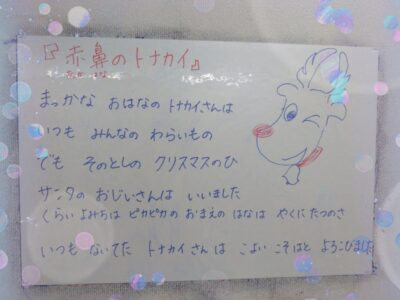 『赤鼻のトナカイ』
あか はな
まっかな おはなの トナカイさんは
いつも みんなの わらいもの
でも そのとしの クリスマスのひ
サンタの おじいさんは いいました
くらい よみちは ピカピカの おまえの はなは やくに たつのさ
いつも ないてた トナカイ さん は こよい こそはと よろこびました